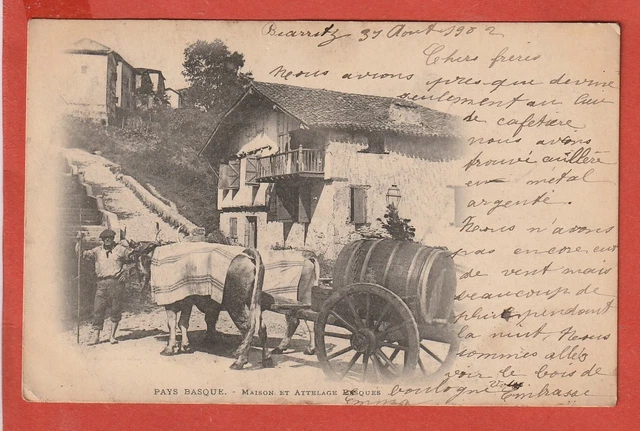 Biarritz 31 Août 1902
Chers frères
Nous avions presque deviné
seulement au lieu
de cafetière
nous avons
trouvé cuillère
en métal
argenté.
Nous n'avons
pas encore eu
de vent mais
beaucoup de
pluie pendant
la nuit. Nous
sommes allés
voir le bois de
boulogne
Embrasse
Emma
PAYS BASQUE. - MAISON ET ATTELAGE BASQUES